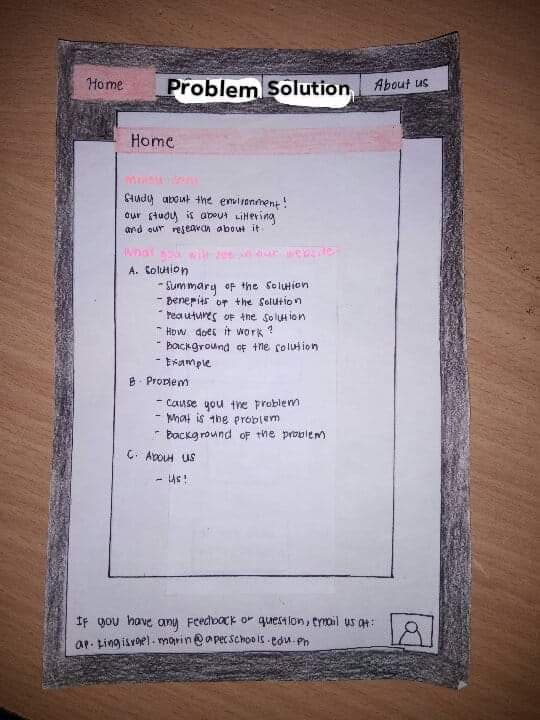 Home Problem Solution About us
Home
Study about the environment!
our study is about Littering
and our research about it.
What you will see in our website:
A. Solution
- Summary of the Solution
- Benefits of the Solution
- Feautures of the Solution
- How does it work?
- Background of the solution
- Example
B. Problem
- Cause you the problem
- What is the problem
- Background of the problem
C. About us
- Us!
If you have any Feedback or question, email us at: